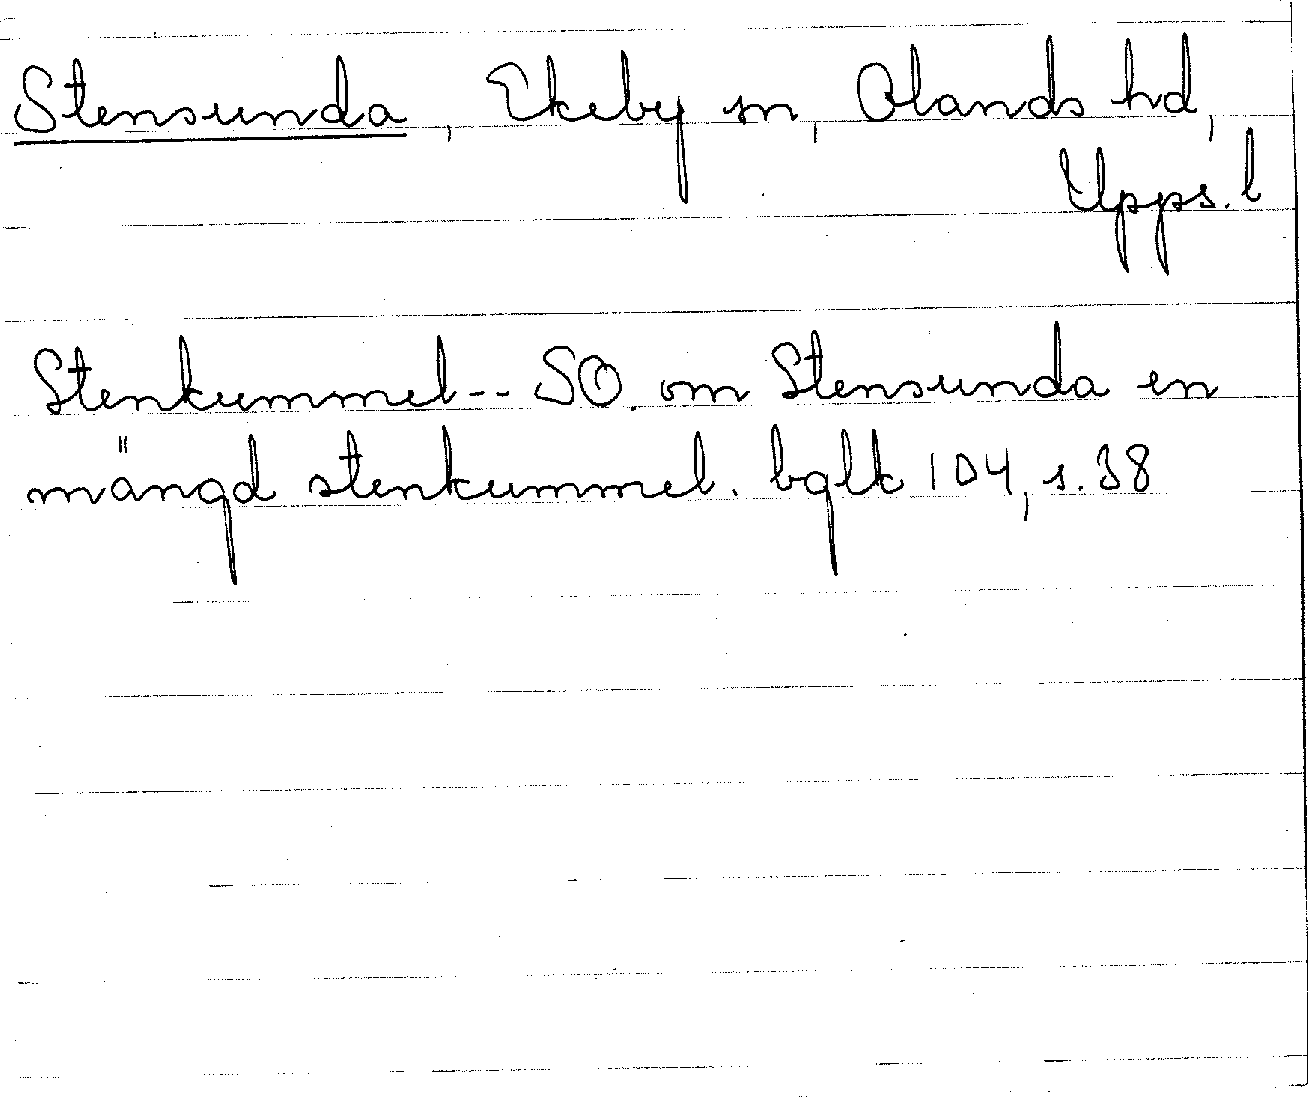 Stensunda, Ekeby sn, Olands hd,
Upps. l
Stenkummel -- SO. om Stensunda en
mängd stenkummel. bglk 104, s. 38